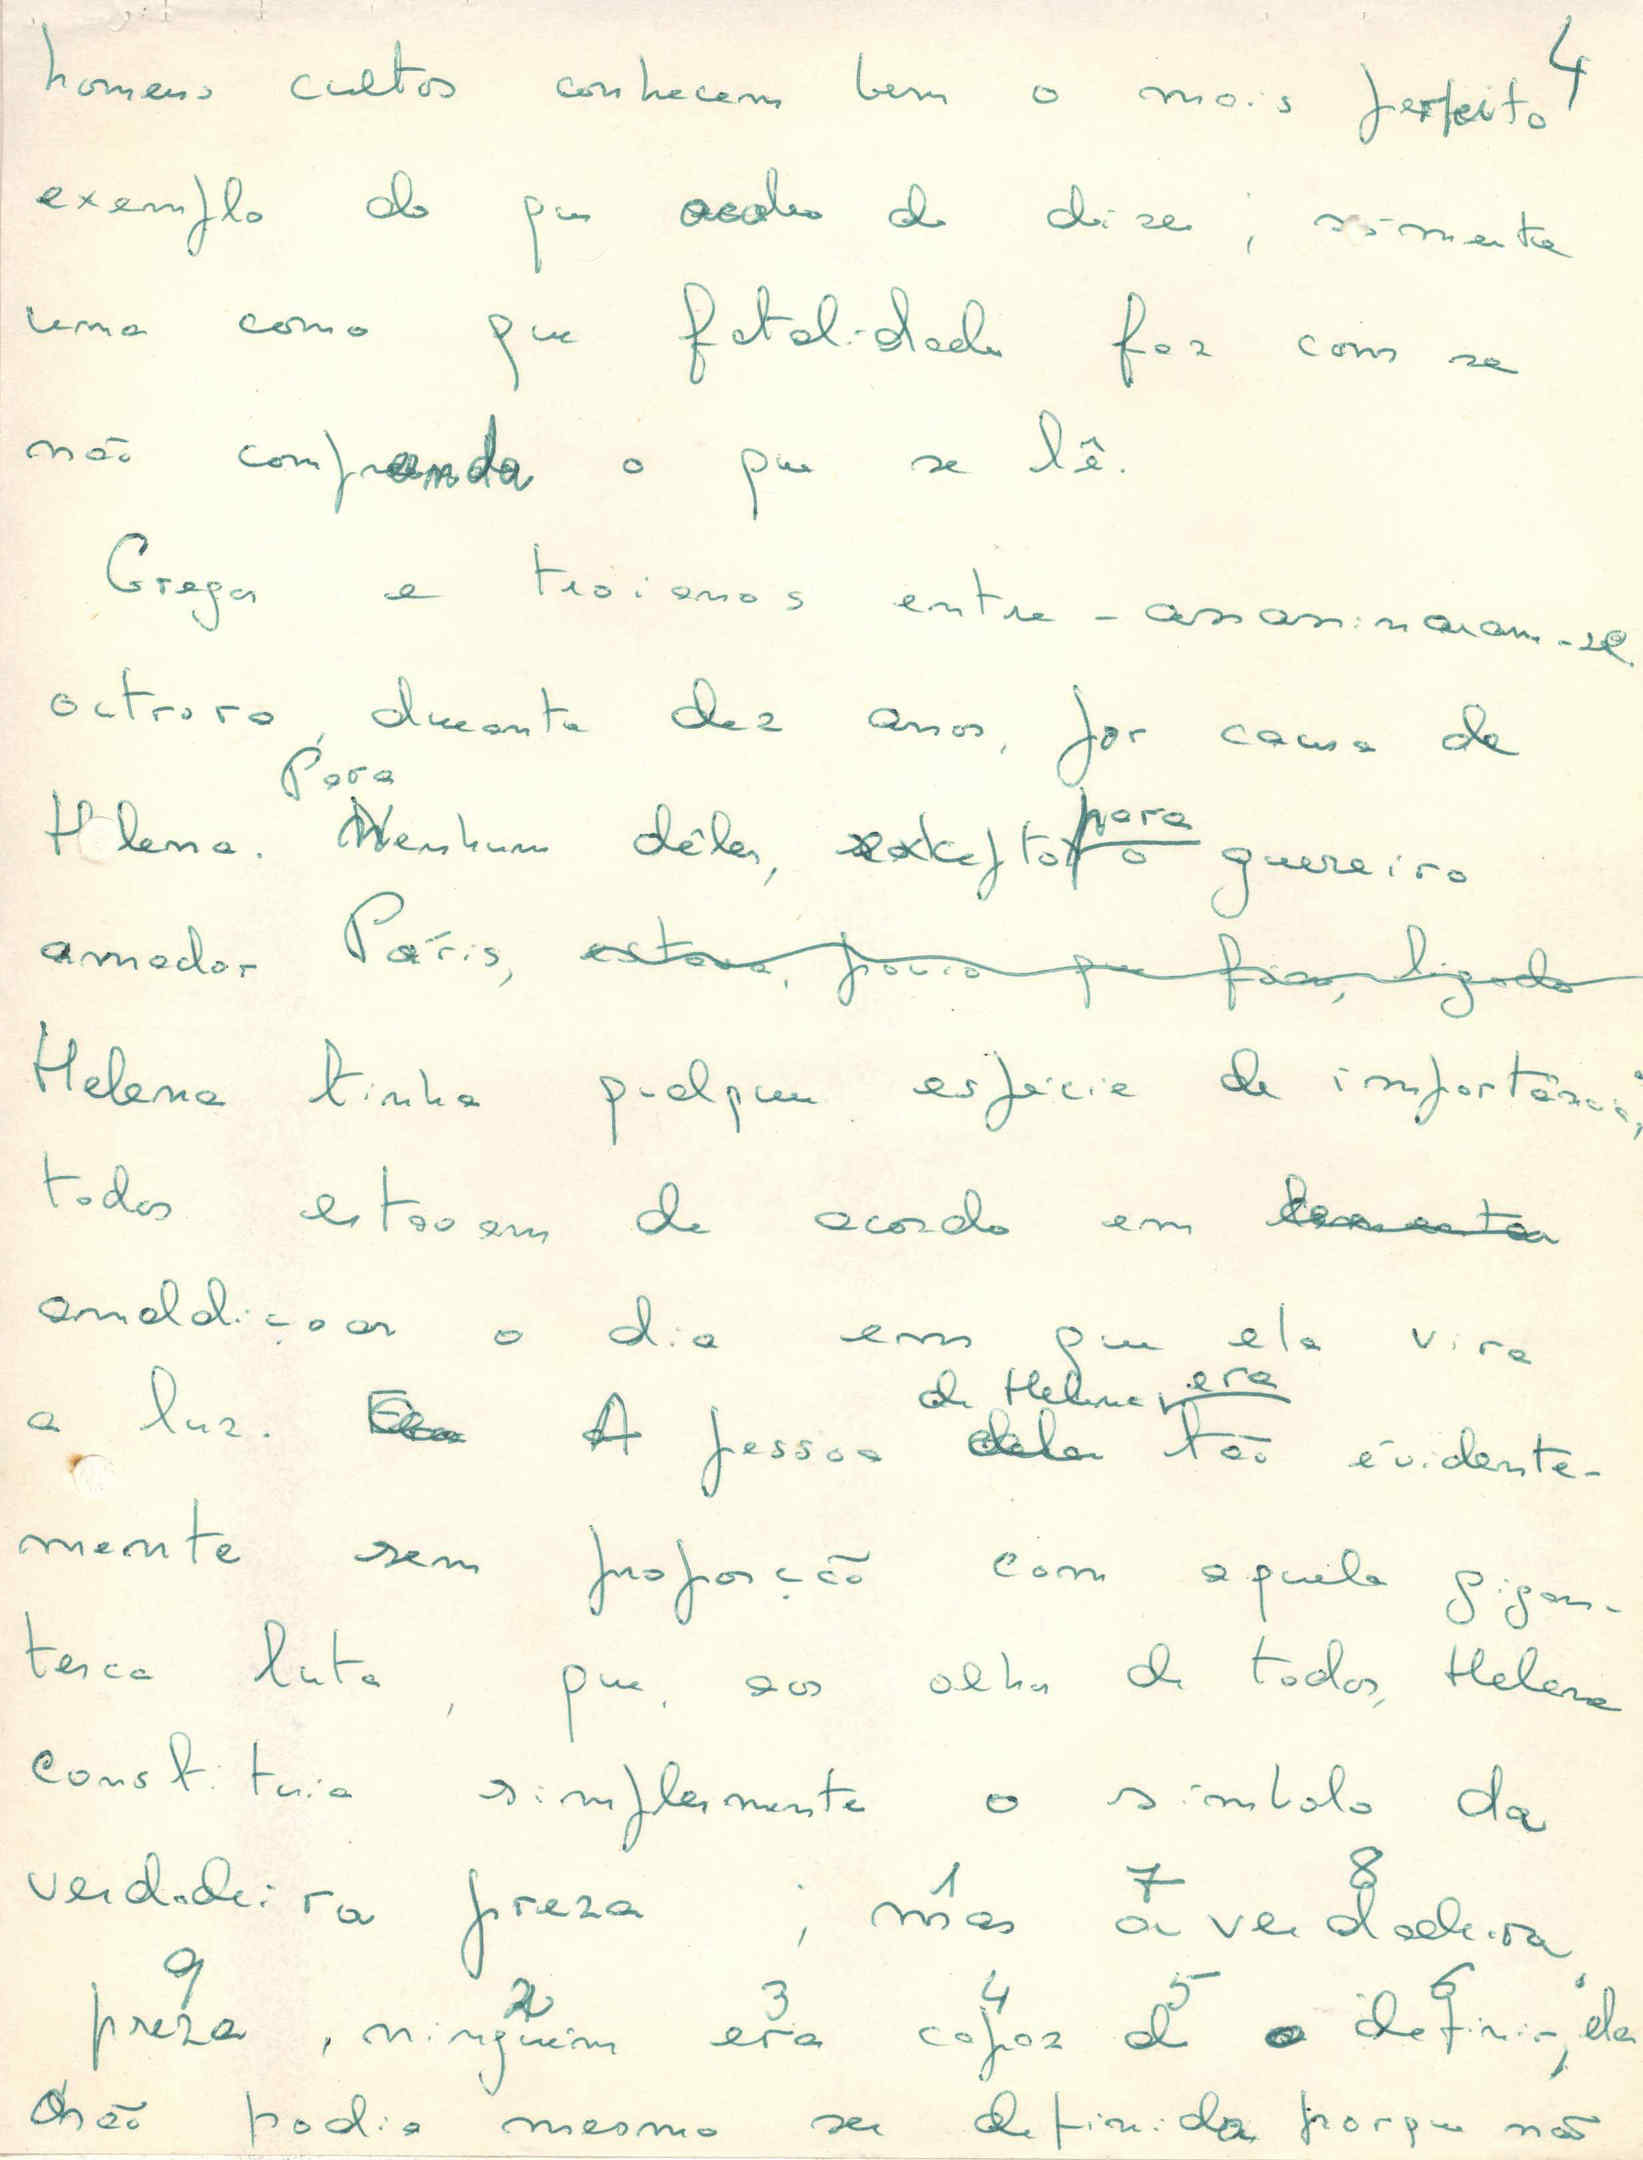 4
homens cultos conhecem bem o mais perfeito
exemplo do que acabo de dizer; sòmente
uma como que fatalidade faz com se
não compreenda o que se lê.
Gregos e troianos entre-assassinaram-se
outrora, durante dez anos, por causa de
Para para
Helena. Nenhum dêles, excepto o guerreiro
amador Páris, estava, povo que fosse, ligado
Helena tinha qualquer espécie de importância;
todos estavam de acordo em lamentar
amaldiçoar o dia em que ela vira
de Helena era
a luz. A pessoa dela tão evidente-
mente sem proporção com aquela gigan-
tesca luta, que, aos olhos de todos, Helena
constituia simplesmente o simbolo da
1 7 8
verdadeira preza; mas a verdadeira
9 2 3 4 5 6
preza, ninguém era capaz de definir; ela
não podia mesmo ser definida porque não